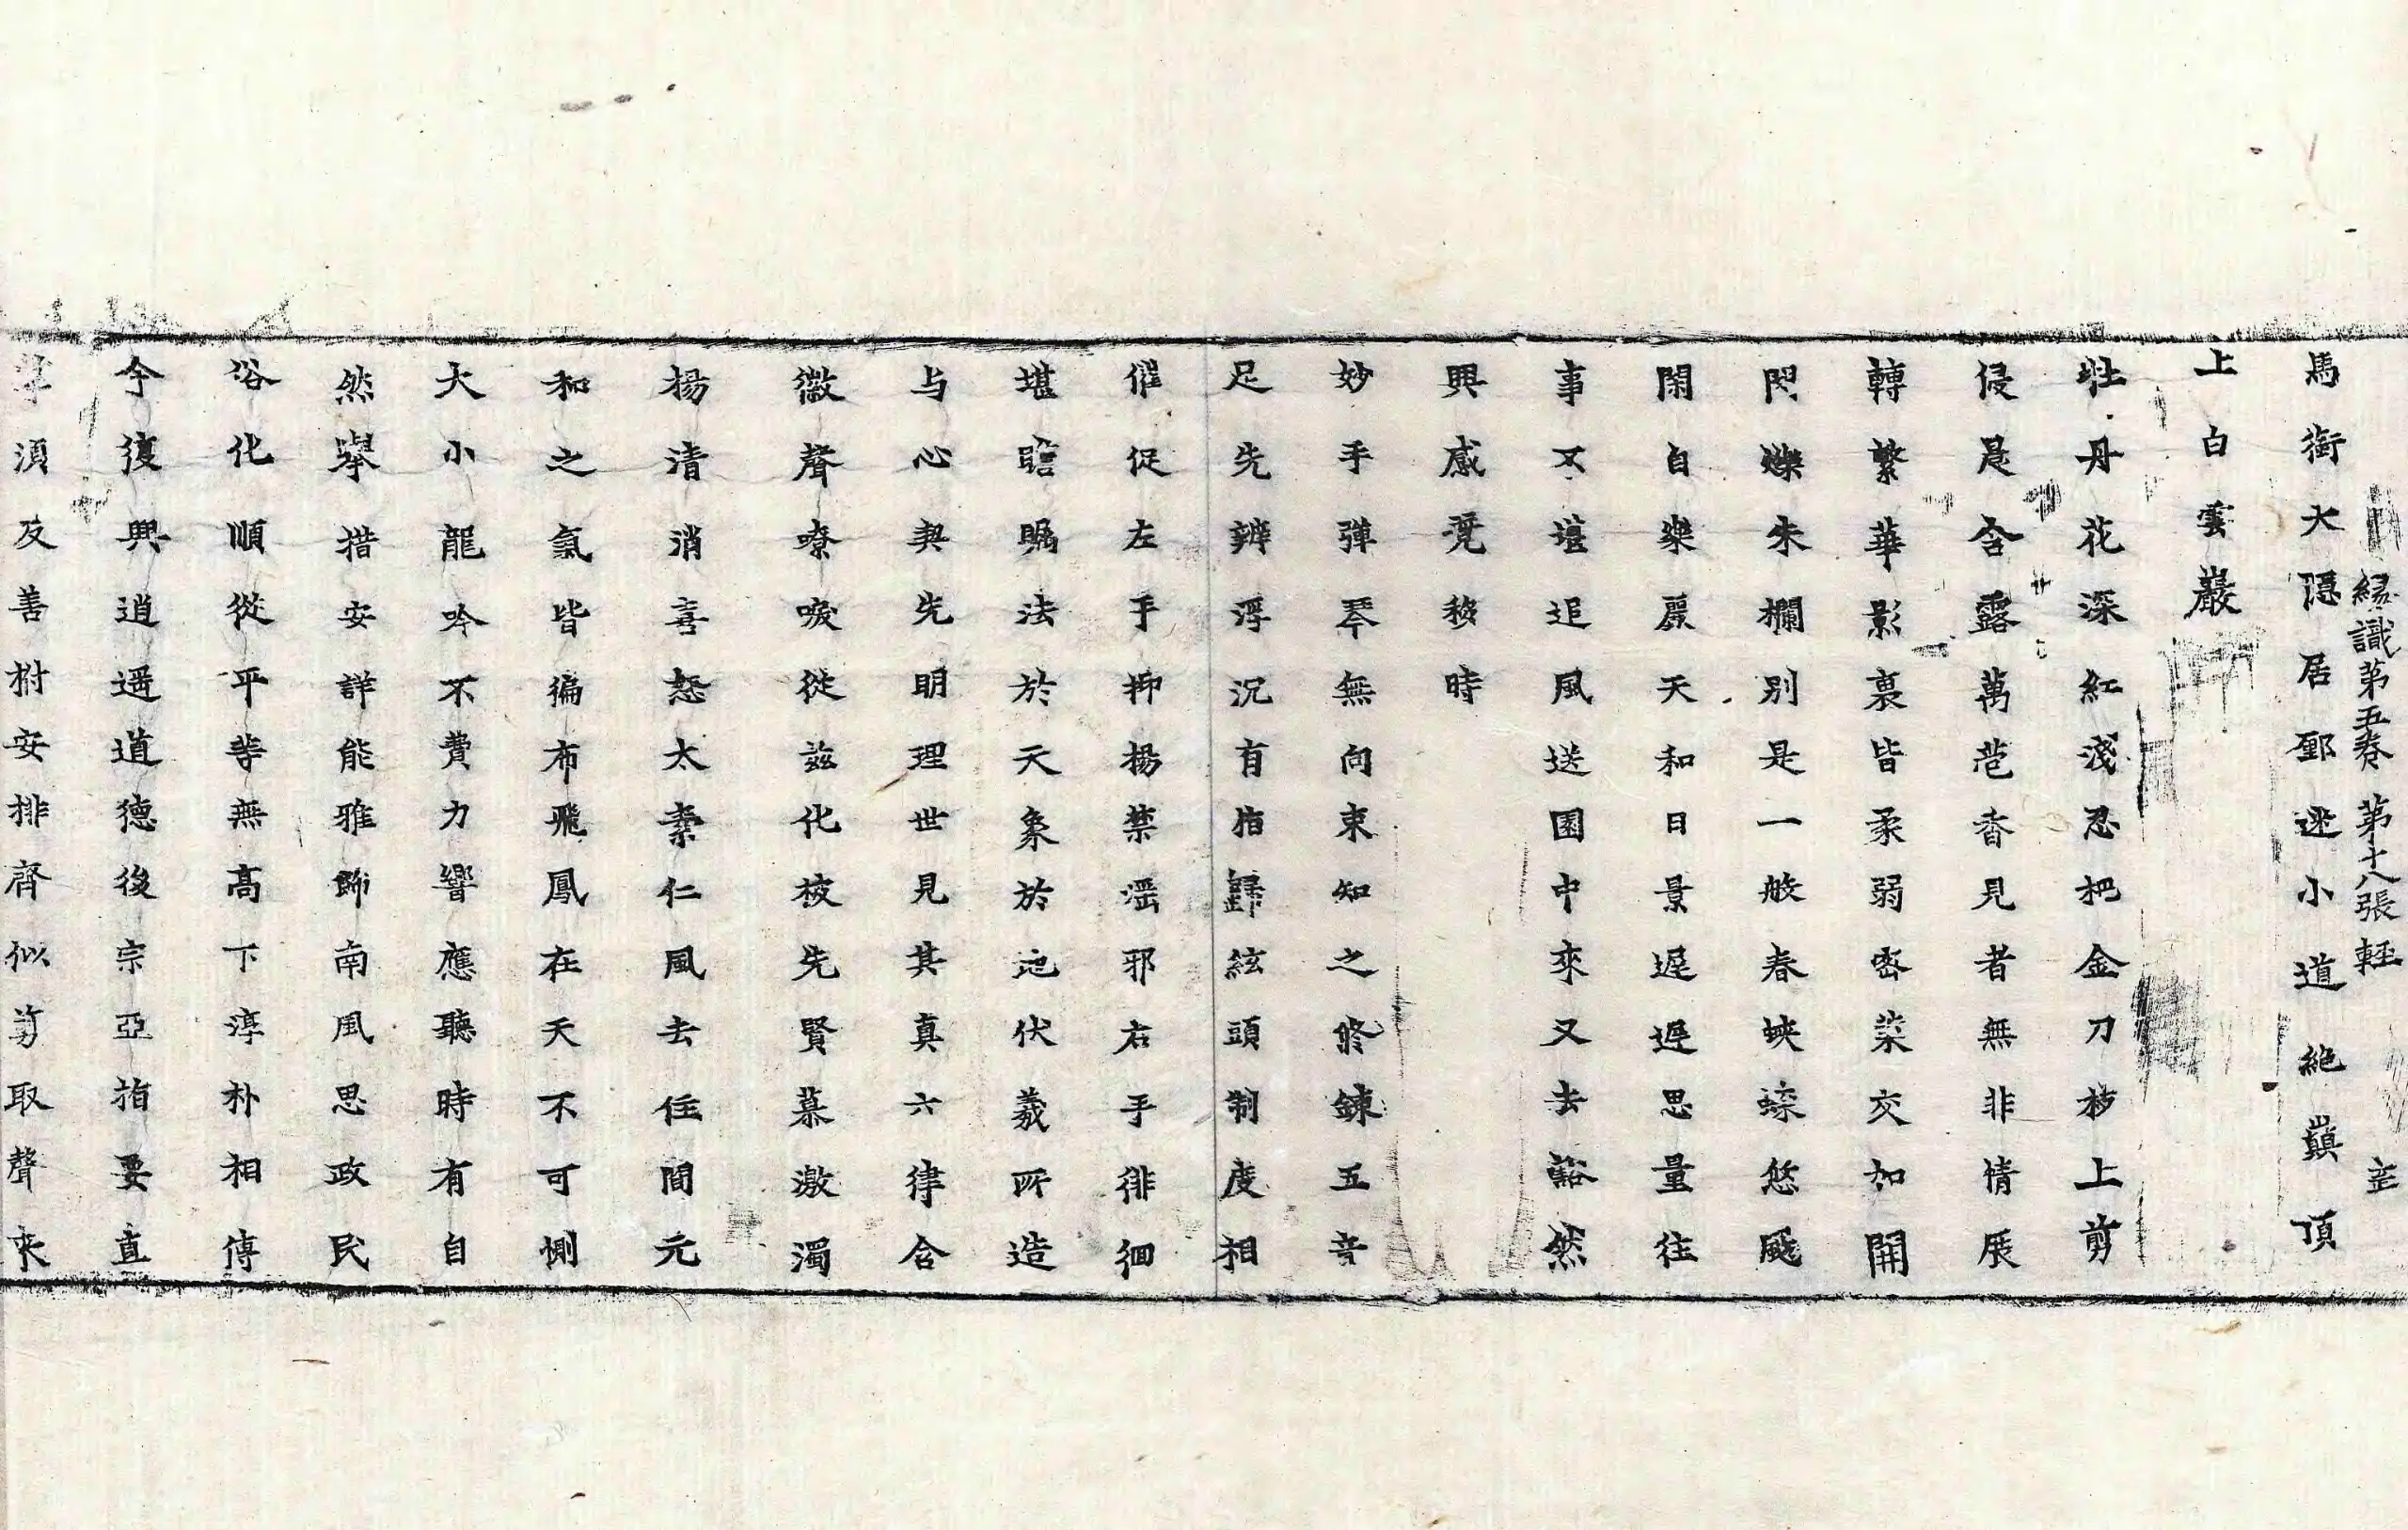 緣識第五卷 第十八張 輕
馬銜大隱居鄽迷小道絶巔頂
上白雲巖
牡丹花深紅淺忍把金刀移上剪
侵晨含露萬苞香見者無非情展
轉繁華影裏皆柔弱密葉交加開
閃爍朱欄別是一般春蛺蝶悠颺
閑自樂麗天和日景遲遲思量往
事不堪追風送園中來又去豁然
興感竟移時
妙手彈琴無向束知之修鍊五音
足先辨浮沉有指歸絃頭制度相
催促左手抑揚禁淫邪右手徘徊
堪瞻矚法於天象於地伏羲所造
与心契先明理世見其真六律含
徽聲嘹唳從兹化被先賢慕激濁
揚清消喜怒太素仁風去住間元
和之氣皆徧布飛鳳在天不可惻
大小龍吟不費力響應聽時有自
然舉措安詳能雅飾南風思政民
俗化順從平等無高下淳朴相傳
今復興逍遥道德後宗亞指要直
須及善樹安排齊似剪取聲来